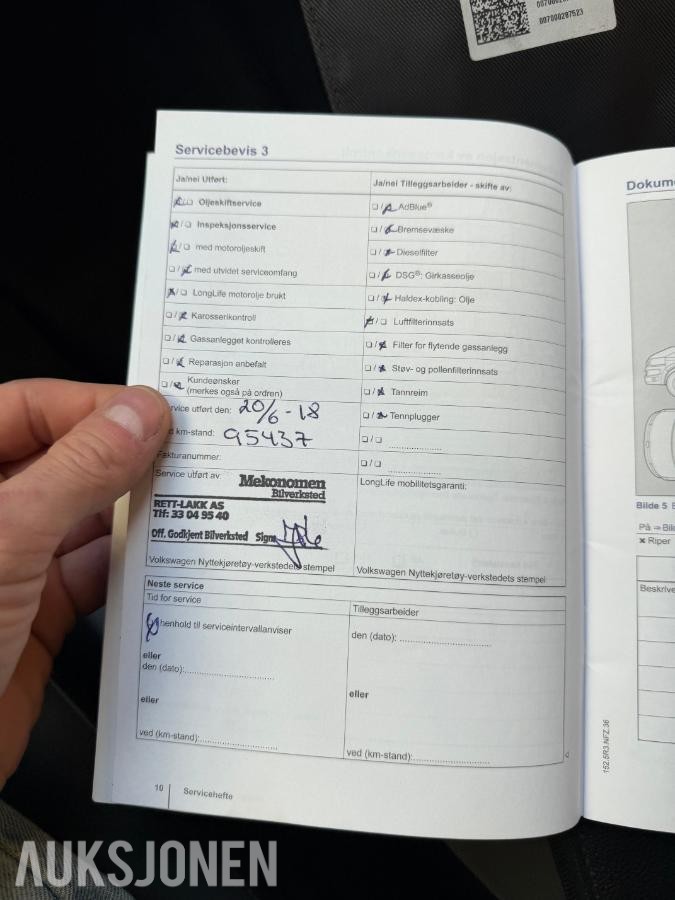 007000287523
Servicebevis 3
Ja/nei Utført:
Oljeskiftservice
Inspeksjonsservice
med motoroljeskift
med utvidet serviceomfang
LongLife motorolje brukt
Karosserikontroll
Gassanlegget kontrolleres
Reparasjon anbefalt
Kundeønsker
(merkes også på ordren)
rvice utført den: 20/6-18
km-stand: 95437
Fakturanummer:
Service utført av:
Mekonomen
Bilverksted
RETT-LAKK AS
Tlf: 33 04 95 40
Off. Godkjent Bilverksted Sign
Volkswagen Nyttekjøretøy-verkstedets stempel
Ja/nei Tilleggsarbeider - skifte av:
AdBlue®
Bremsevæske
Dieselfilter
DSG®: Girkasseolje
Haldex-kobling: Olje
Luftfilterinnsats
Filter for flytende gassanlegg
Støv- og pollenfilterinnsats
Tannreim
Tennplugger
LongLife mobilitetsgaranti:
Volkswagen Nyttekjøretøy-verkstedets stempel
Neste service
Tid for service
henhold til serviceintervallanviser
eller
den (dato):
eller
ved (km-stand):
Tilleggsarbeider
den (dato):
eller
ved (km-stand):
10 Servicehefte
Dokum
Bilde 5
På ⇒ Bil
Riper
Beskrive
152.5R3.NFZ.36
AUKSJONEN